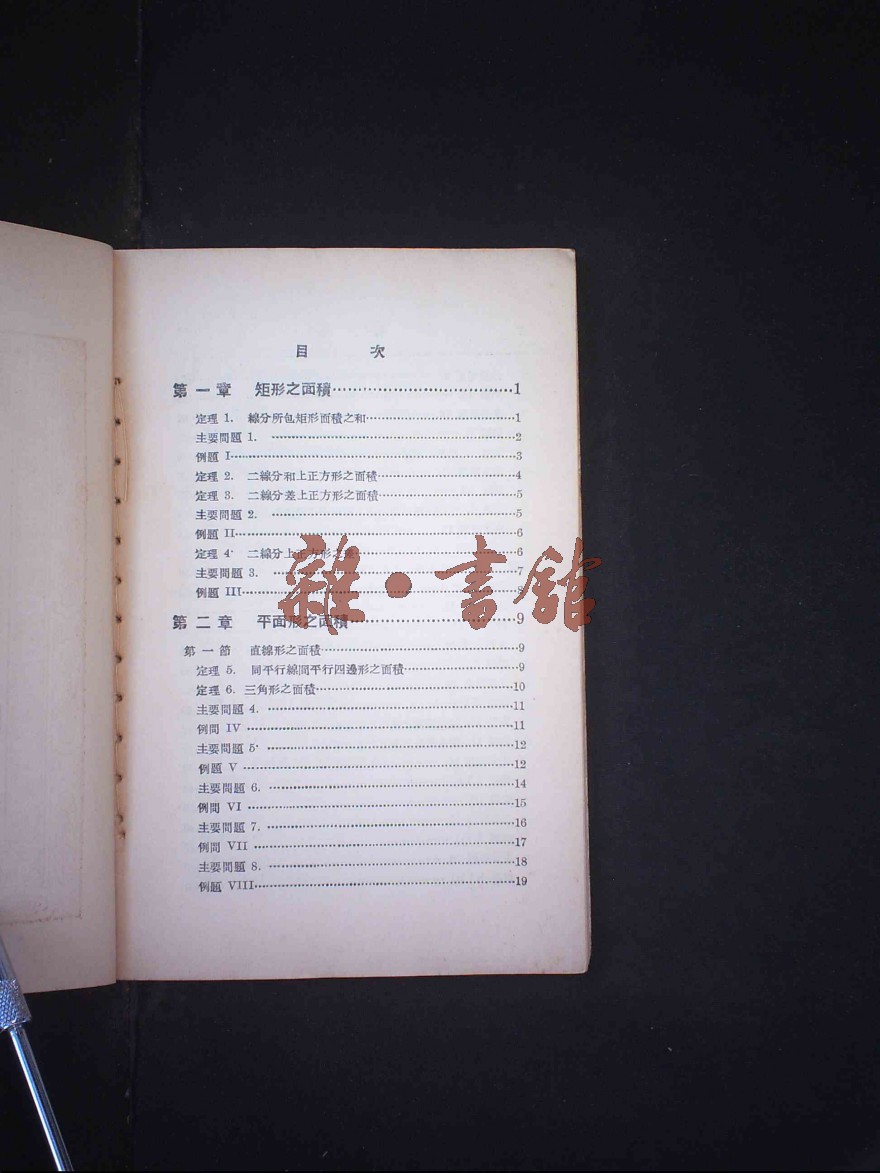 目 次
第一章 矩形之面積……………………………1
定理 1. 線分所包矩形面積之和……………………1
主要問題 1. ……………………………………2
例題 I……………………………………………3
定理 2. 二線分和上正方形之面積……………………4
定理 3. 二線分差上正方形之面積……………………5
主要問題 2. ……………………………………5
例題 II……………………………………………6
定理 4. 二線分上正方形之差……………………6
主要問題 3. ……………………………………7
例題 III……………………………………………8
第二章 平面形之面積……………………………9
第一節 直線形之面積……………………………9
定理 5. 同平行線間平行四邊形之面積………………9
定理 6. 三角形之面積……………………………10
主要問題 4. ……………………………………11
例問 IV ……………………………………………11
主要問題 5. ……………………………………12
例題 V ……………………………………………12
主要問題 6. ……………………………………14
例問 VI ……………………………………………15
主要問題 7. ……………………………………16
例問 VII ……………………………………………17
主要問題 8. ……………………………………18
例題 VIII……………………………………………19
雜·書館